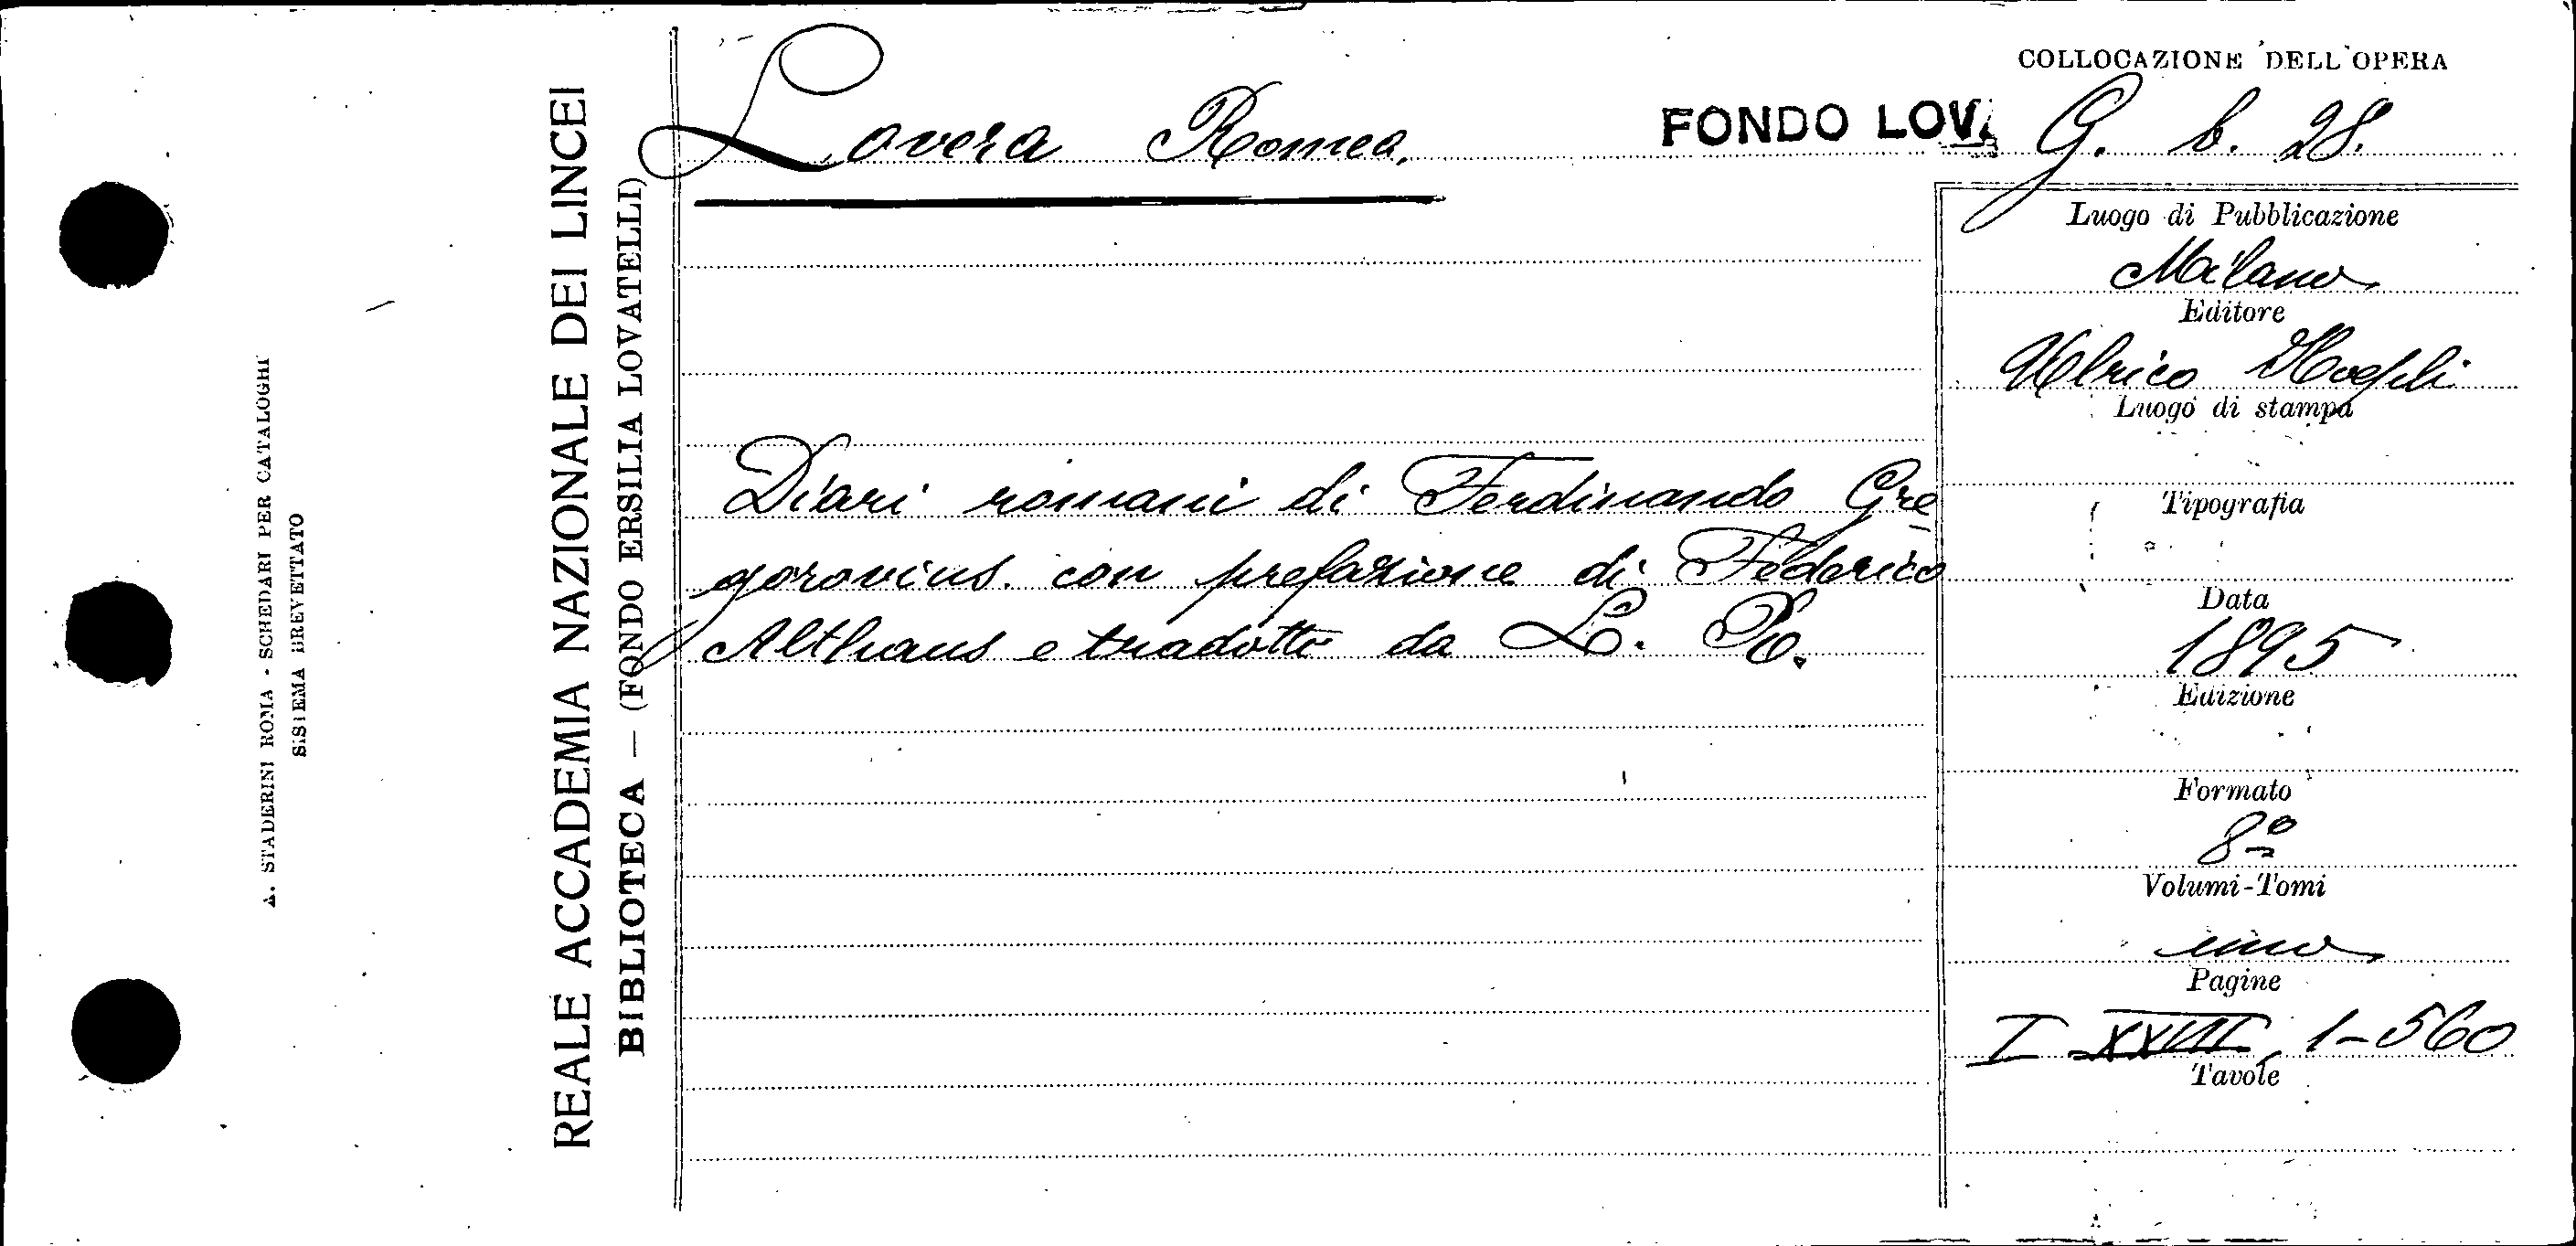 A. STADERINI ROMA - SCHEDARI PER CATALOGHI
SISTEMA BREVETTATO
REALE ACCADEMIA NAZIONALE DEI LINCEI
BIBLIOTECA — (FONDO ERSILIA LOVATELLI)
Lovera Romea.
FONDO LOV.
COLLOCAZIONE DELL'OPERA
G. b. 28.
Diari romani di Ferdinando Gre
gorovius con prefazione di Federico
Althaus e tradotto da L. R.
Luogo di Pubblicazione
Milano
Editore
Ulrico Hoepli
Luogo di stampa
Tipografia
Data
1895
Edizione
Formato
8º
Volumi-Tomi
uno
Pagine
I XXVII, 1-560
Tavole